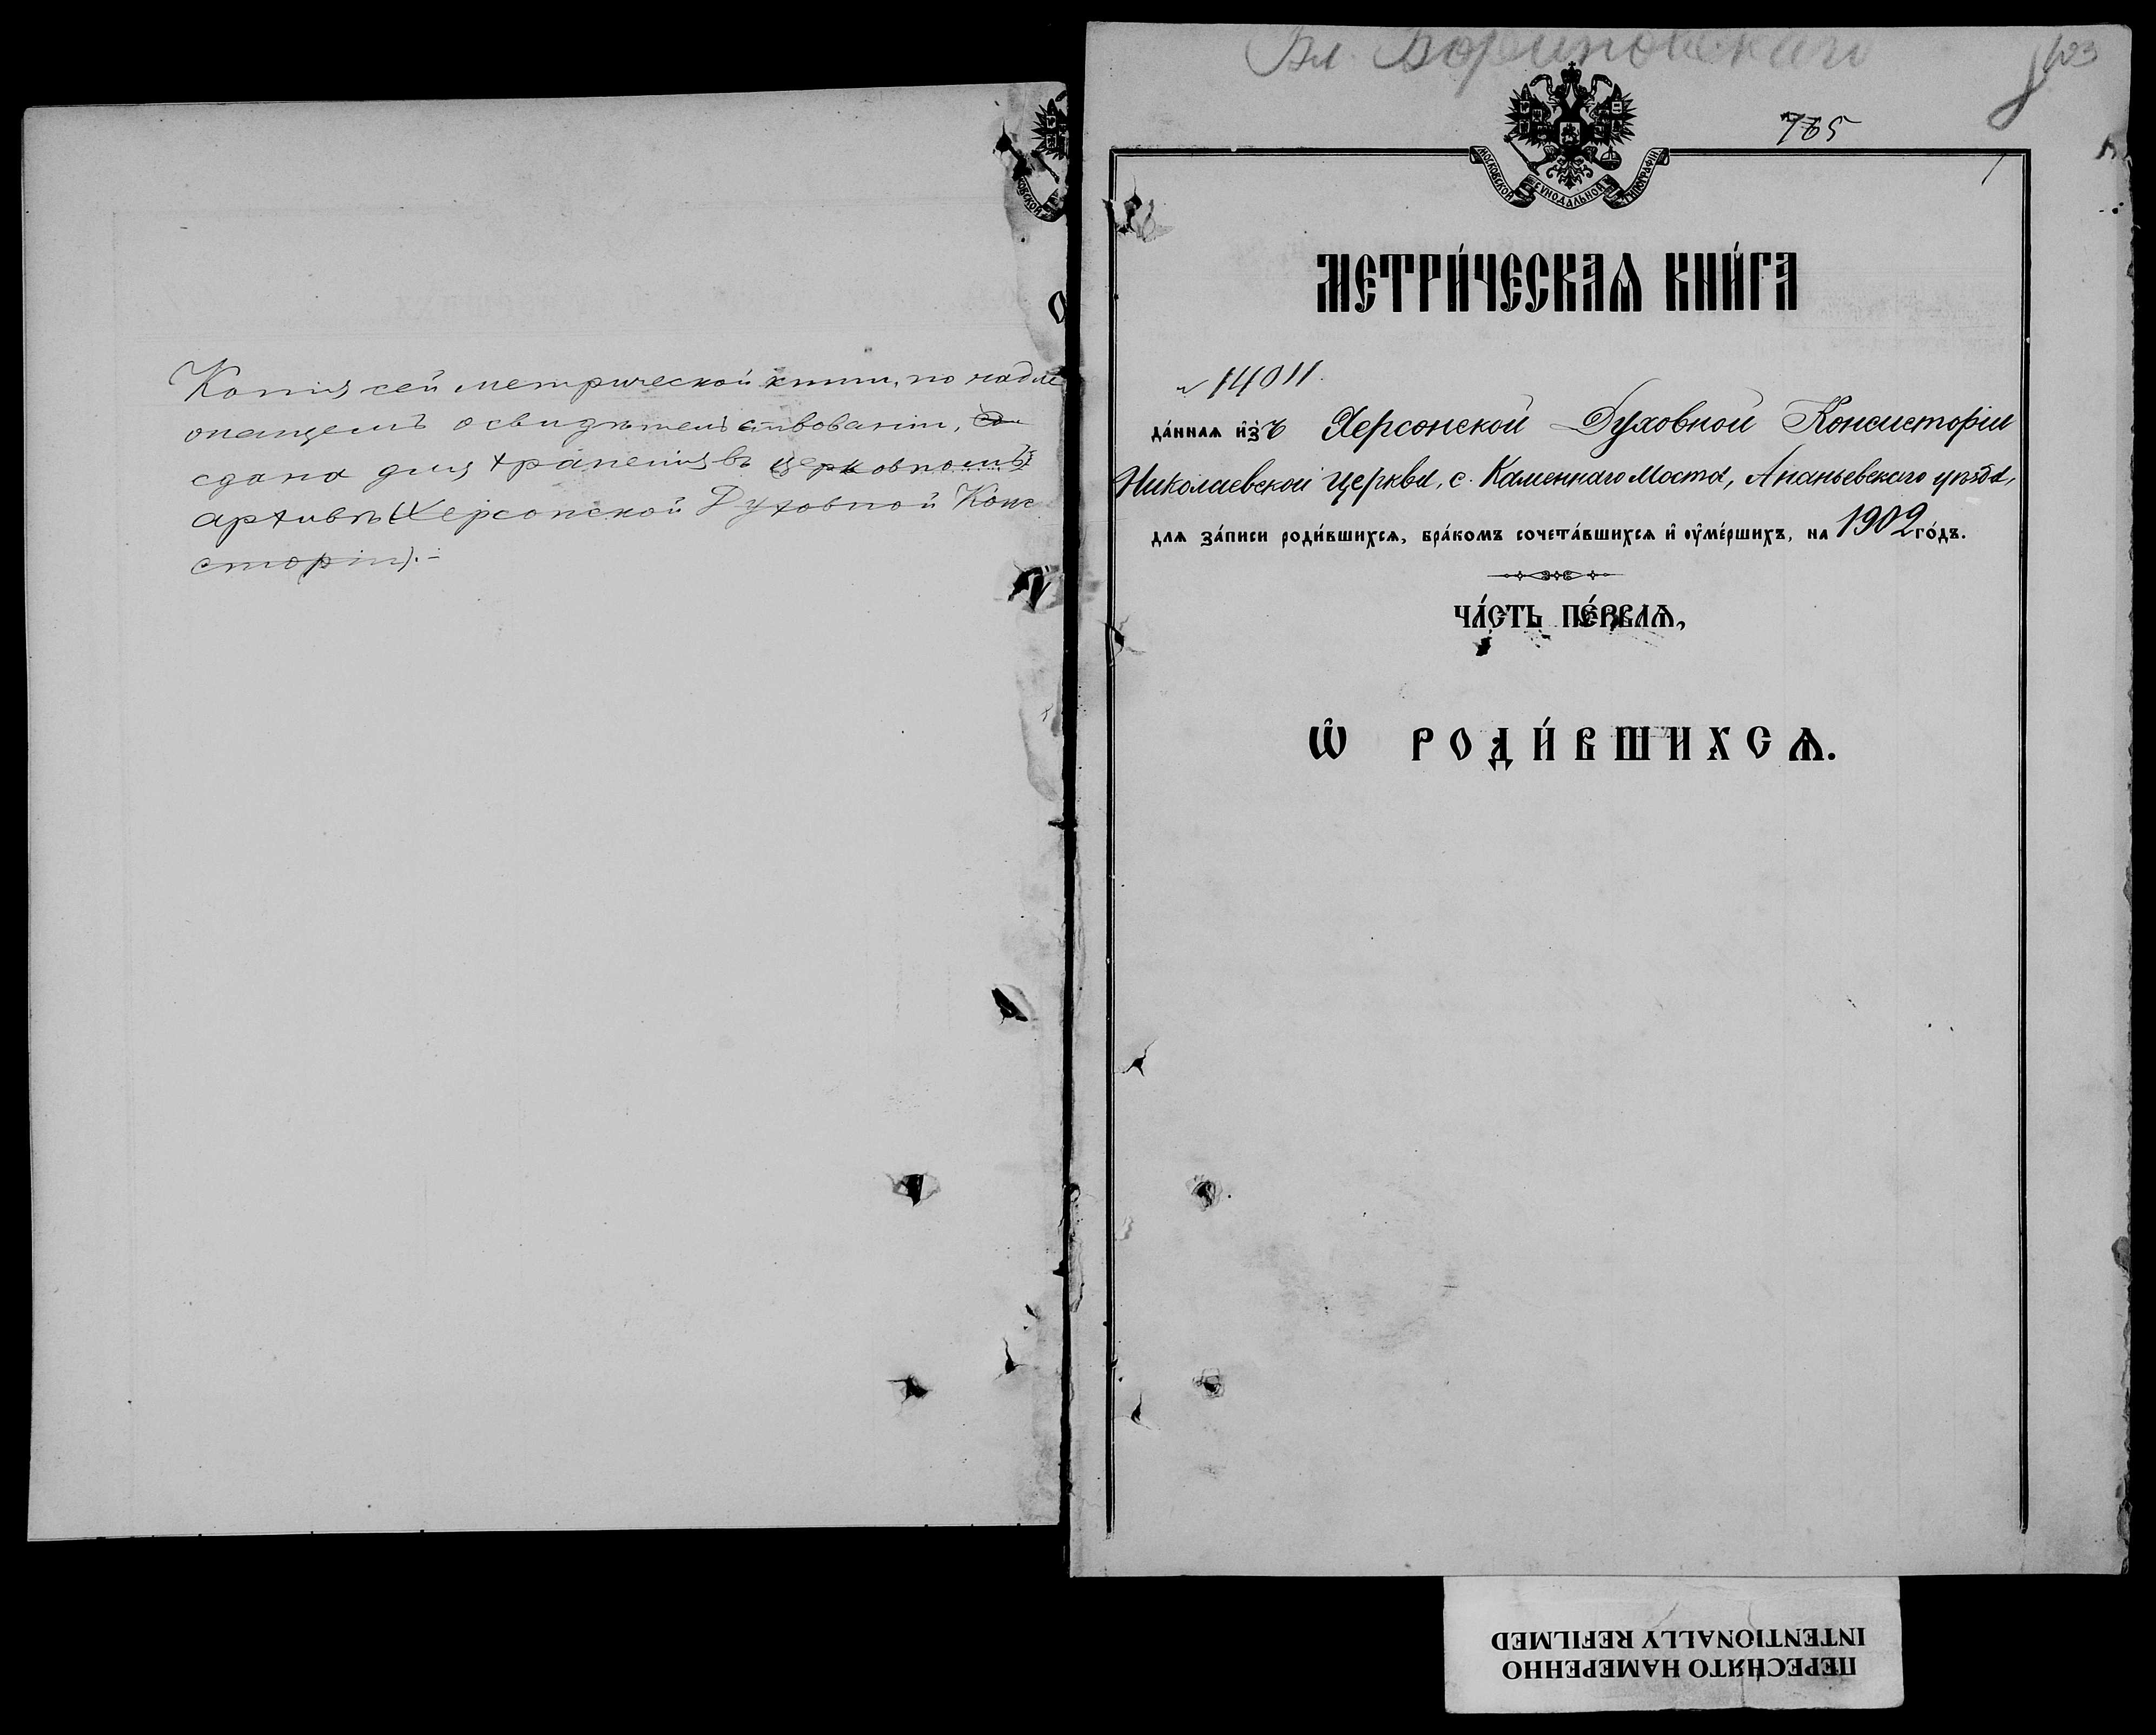 Копія сей метрической книги, по надле
сдана для храненія въ церковномъ
архивѣ (Херсонской Духовной Конс
сторіи).-
Вл.
765
МОСКОВСКОЙ СѴНОДАЛЬНОЙ ТИПОГРАФІИ
МЕТРИ́ЧЕСКАѦ КНИ́ГА
№ 14011.
да́ннаѧ и҆зъ Херсонской Духовной Консисторіи
Николаевской церкви, с. Каменнаго Моста, Ананьевскаго уѣзда,
длѧ за́писи роди́вшихсѧ, бра́комъ сочета́вшихсѧ и҆ оу҆ме́ршихъ, на 1902 го́дъ.
ЧА́СТЬ ПЕ́РВАѦ,
Ѡ҆ РОДИ́ВШИХСѦ.
ПЕРЕСНЯТО НАМЕРЕННО
INTENTIONALLY REFILMED